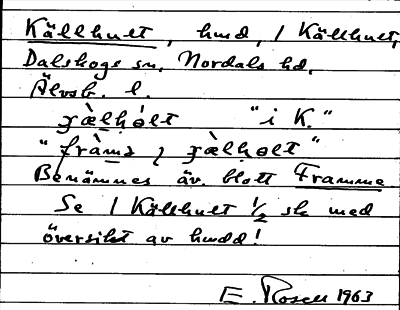 Källhult, hmd, / Källhult,
Dalskogs sn, Nordals hd,
Älvsb. l.
ɟæ̀lhólt "i K."
"fràmə ɩ ɟæ̀lhɷlt"
Benämnes äv. blott Framme.
Se / Källhult ½ sk med
översikt av hmdd!
E. Rosell 1963